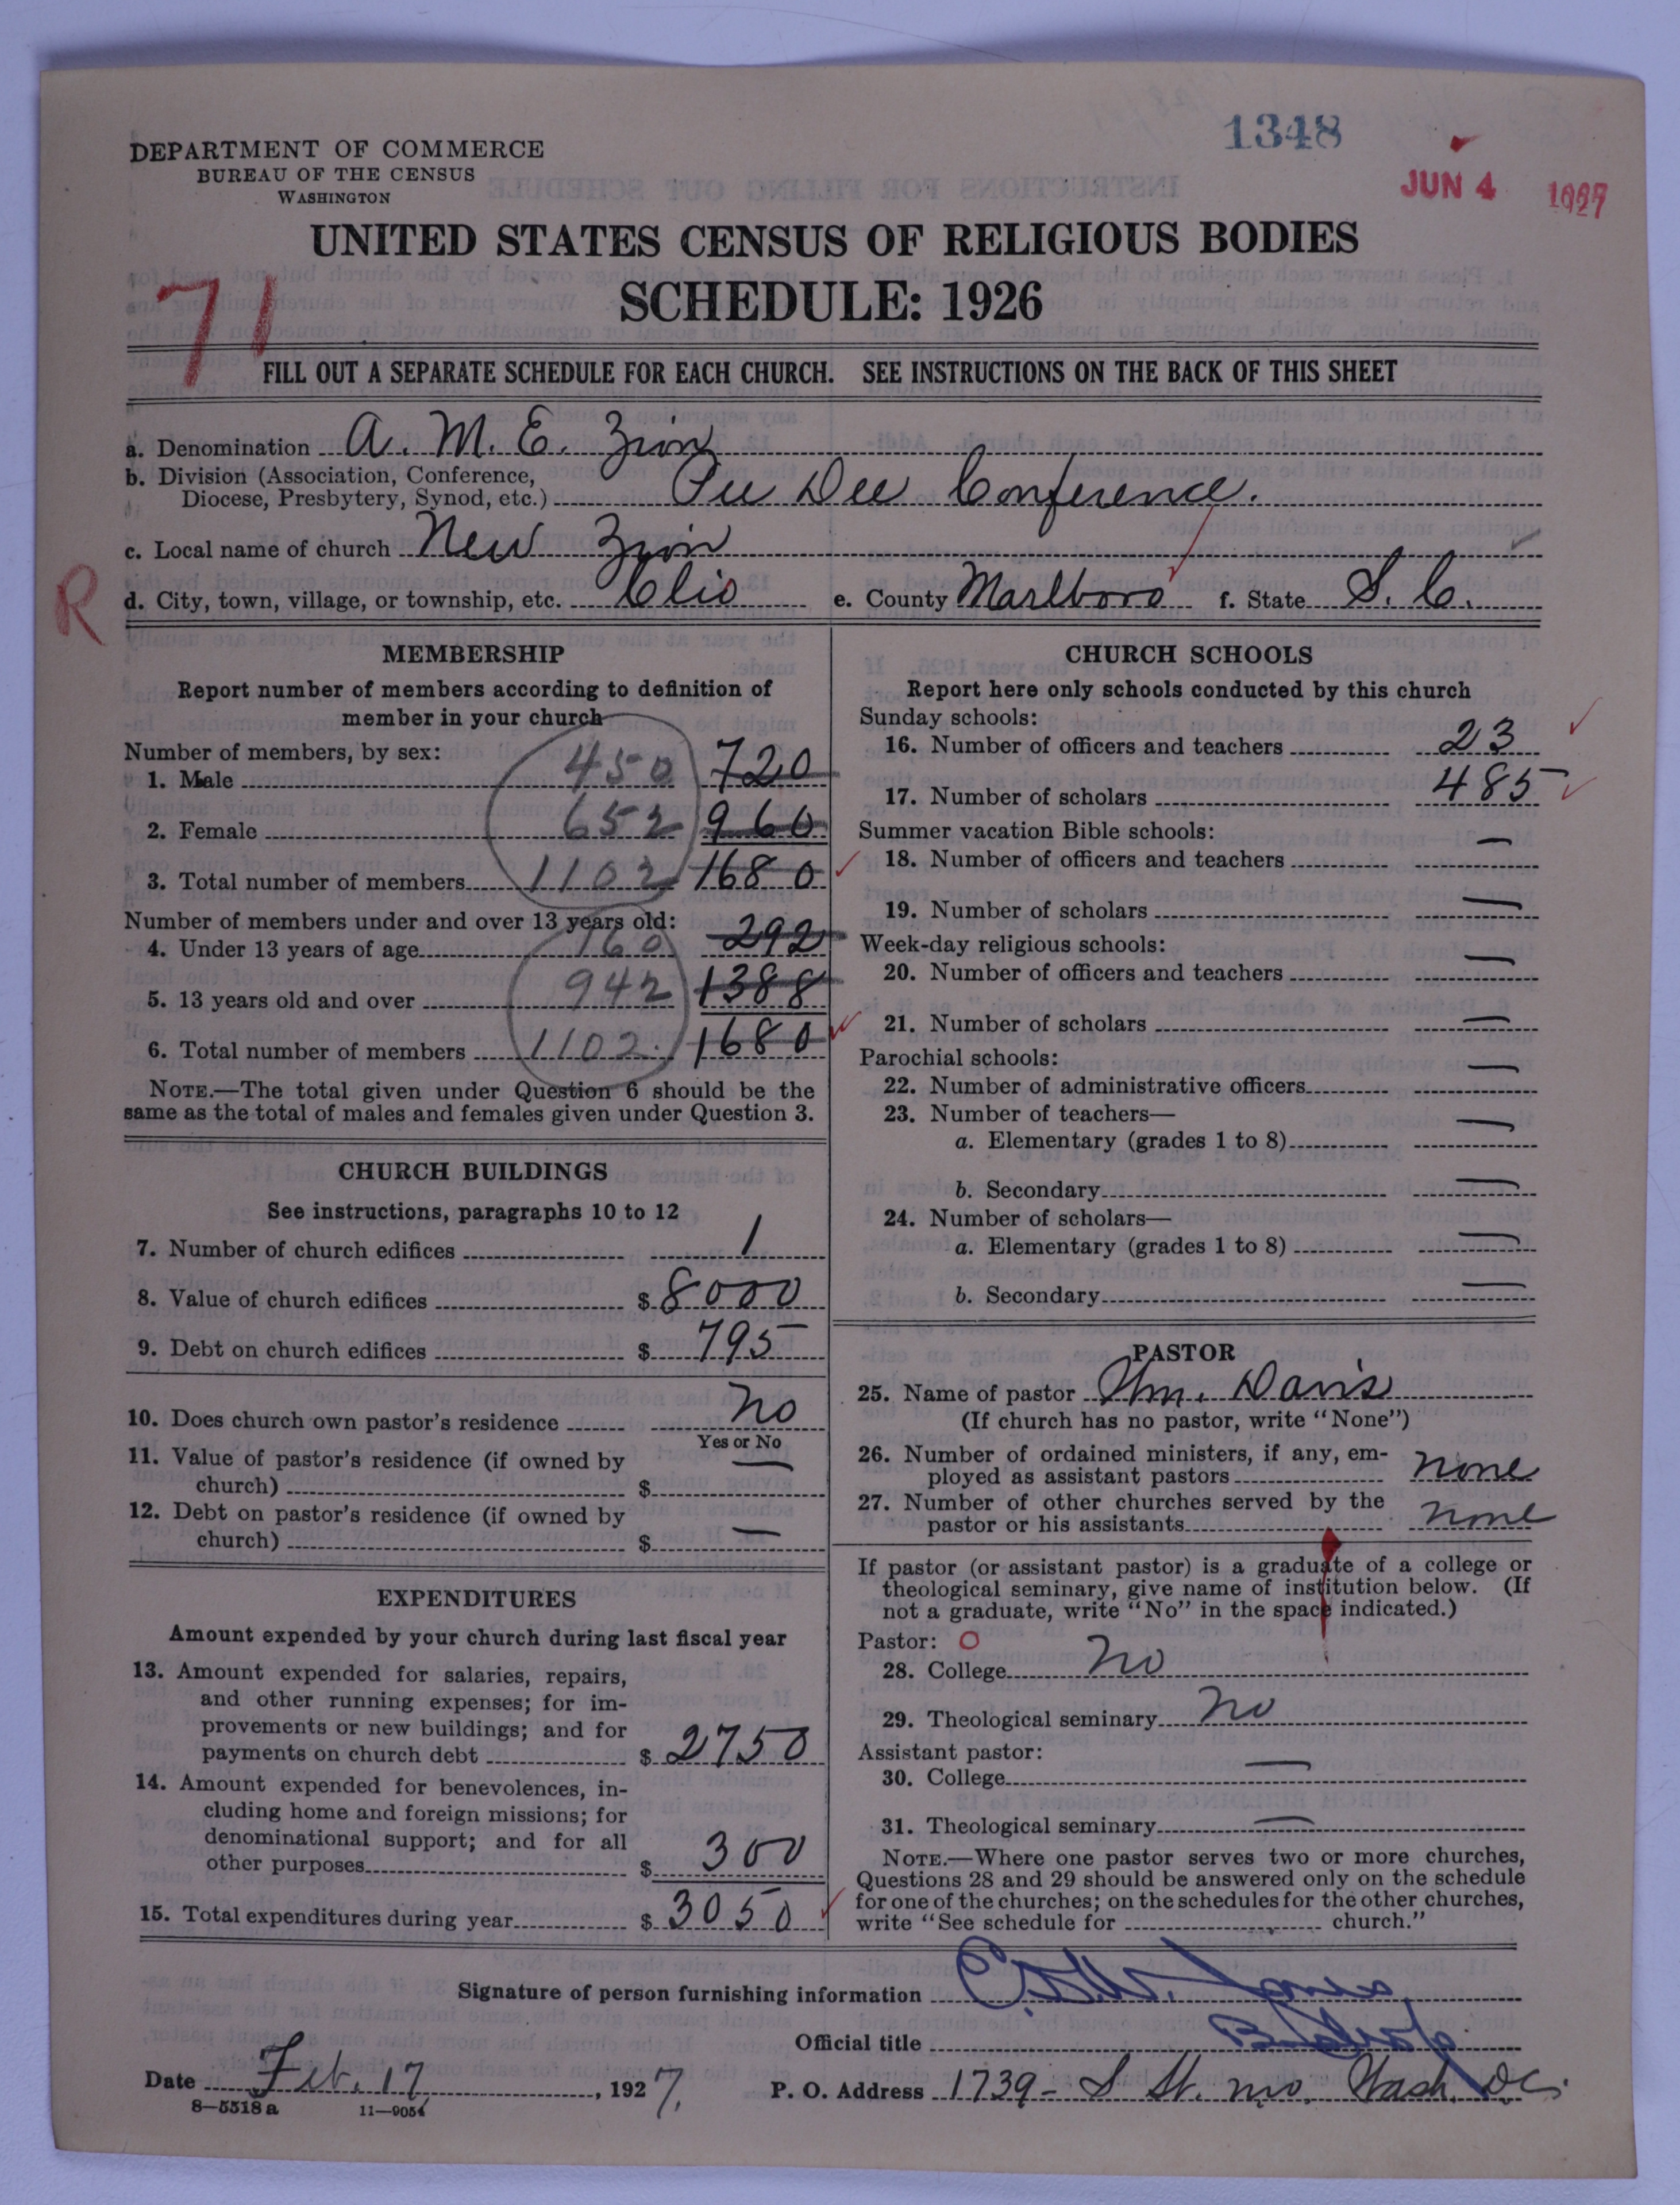 1348
JUN 4 1927
DEPARTMENT OF COMMERCE
BUREAU OF THE CENSUS
WASHINGTON
UNITED STATES CENSUS OF RELIGIOUS BODIES
SCHEDULE: 1926
71
FILL OUT A SEPARATE SCHEDULE FOR EACH CHURCH. SEE INSTRUCTIONS ON THE BACK OF THIS SHEET
a. Denomination A. M. E. Zion
b. Division (Association, Conference,
Diocese, Presbytery, Synod, etc.) Pee Dee Conference.
c. Local name of church New Zion
R
d. City, town, village, or township, etc. Clio e. County Marlboro f. State S. C.
MEMBERSHIP
Report number of members according to definition of
member in your church
Number of members, by sex:
1. Male 450 720
2. Female 652 960
3. Total number of members 1102 1680
Number of members under and over 13 years old:
4. Under 13 years of age 160 292
5. 13 years old and over 942 1388
6. Total number of members 1102. 1680
NOTE.—The total given under Question 6 should be the
same as the total of males and females given under Question 3.
CHURCH BUILDINGS
See instructions, paragraphs 10 to 12
7. Number of church edifices 1
8. Value of church edifices $ 8000
9. Debt on church edifices $ 795
10. Does church own pastor's residence No
Yes or No
11. Value of pastor's residence (if owned by
church) $ —
12. Debt on pastor's residence (if owned by
church) $ —
EXPENDITURES
Amount expended by your church during last fiscal year
13. Amount expended for salaries, repairs,
and other running expenses; for im-
provements or new buildings; and for
payments on church debt $ 2750
14. Amount expended for benevolences, in-
cluding home and foreign missions; for
denominational support; and for all
other purposes $ 300
15. Total expenditures during year $ 3050
CHURCH SCHOOLS
Report here only schools conducted by this church
Sunday schools:
16. Number of officers and teachers 23
17. Number of scholars 485
Summer vacation Bible schools:
18. Number of officers and teachers —
19. Number of scholars —
Week-day religious schools:
20. Number of officers and teachers —
21. Number of scholars —
Parochial schools:
22. Number of administrative officers —
23. Number of teachers—
a. Elementary (grades 1 to 8) —
b. Secondary —
24. Number of scholars—
a. Elementary (grades 1 to 8) —
b. Secondary —
PASTOR
25. Name of pastor Wm. Davis
(If church has no pastor, write "None")
26. Number of ordained ministers, if any, em-
ployed as assistant pastors None
27. Number of other churches served by the
pastor or his assistants None
If pastor (or assistant pastor) is a graduate of a college or
theological seminary, give name of institution below. (If
not a graduate, write "No" in the space indicated.)
Pastor: O
28. College No
29. Theological seminary No
Assistant pastor:
30. College —
31. Theological seminary —
NOTE.—Where one pastor serves two or more churches,
Questions 28 and 29 should be answered only on the schedule
for one of the churches; on the schedules for the other churches,
write "See schedule for church."
Signature of person furnishing information Jones
Official title Bishop
Date Feb. 17, 1927. P. O. Address 1739 - S St. nw. Wash. DC.
8—5518 a 11—9054